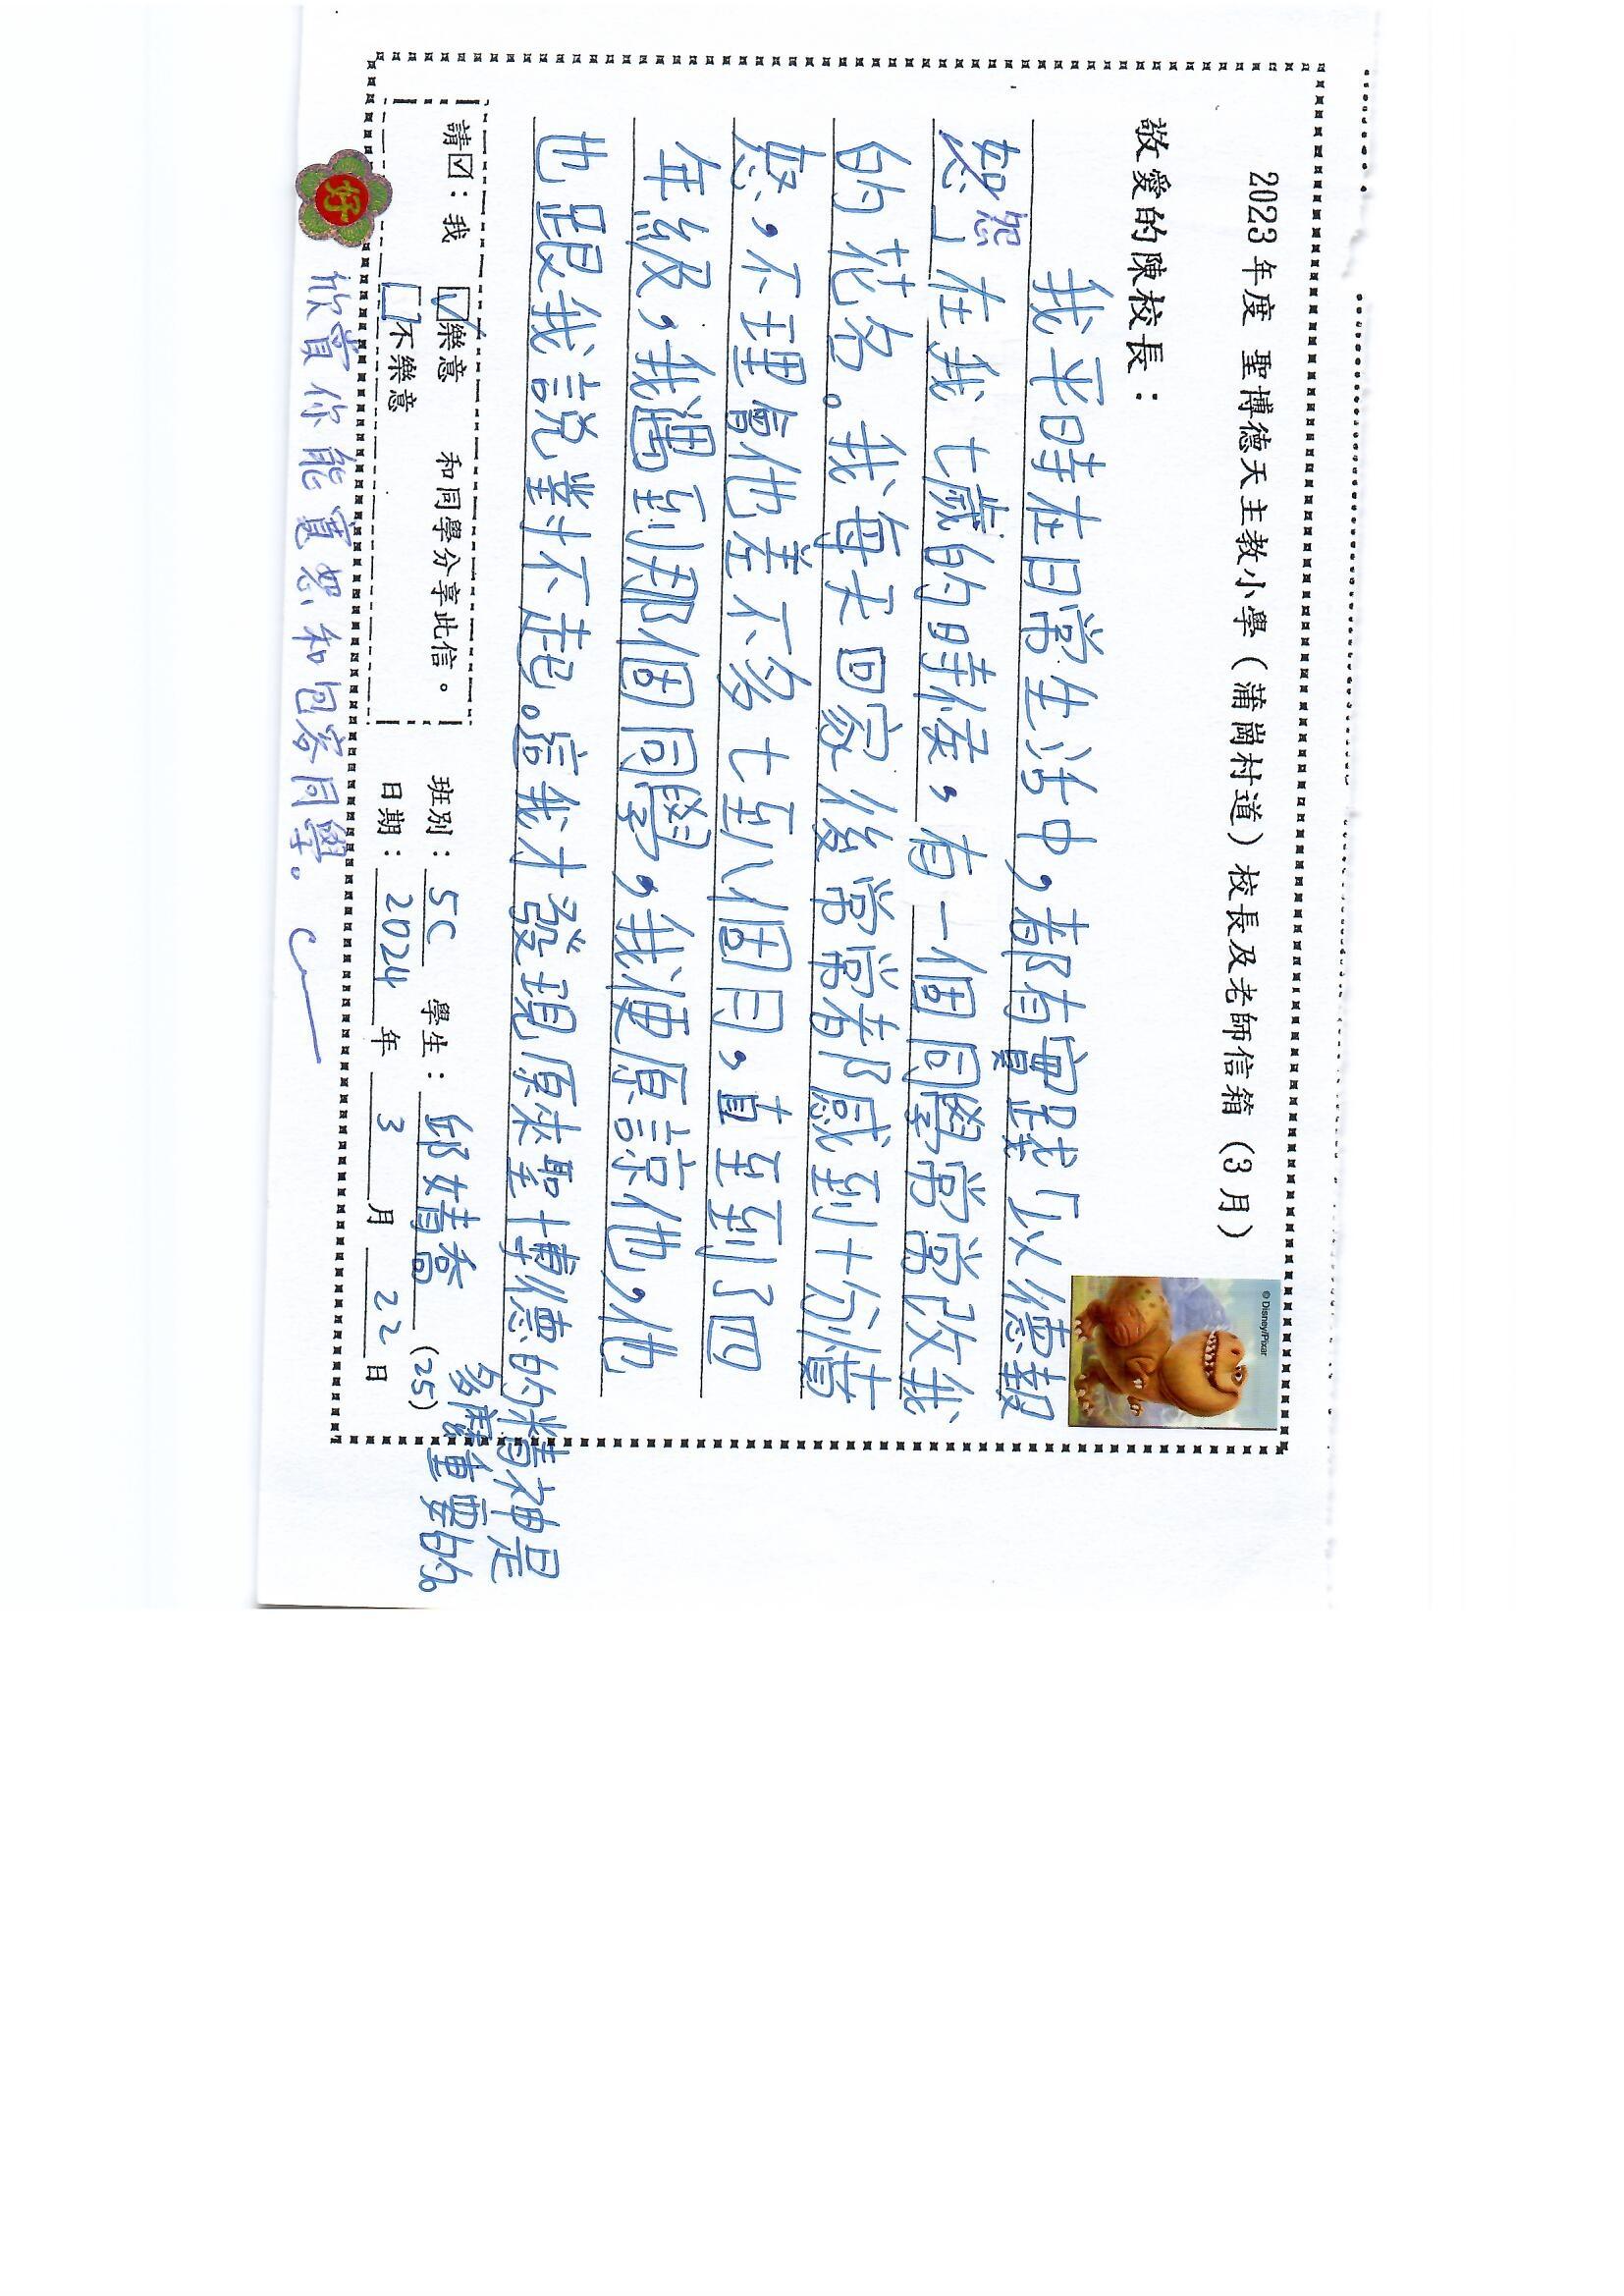 2023年度 聖博德天主教小學（蒲崗村道）校長及老師信箱（3月）
© Disney/Pixar
敬愛的陳校長：
我平時在日常生活中，都有實踐「以德報
怨
恕」在我七歲的時侯，有一個同學常常改我
的花名。我每天回家後常常都感到十分憤
怒，不理會他差不多七至八個月，直至到了四
年級，我遇到那個同學，我便原諒他，他
也跟我説對不起。這我才發現原來聖博德的精神是
多麼重要的。
請☑：我 ☑樂意 和同學分享此信。
□不樂意
班別：5C 學生：邱婧喬 (25)
日期：2024年3月22日
好
欣賞你能寬恕和包容同學。